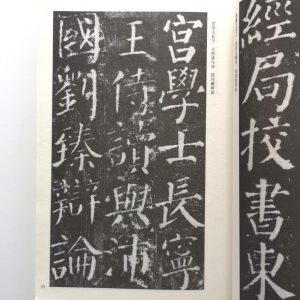 經局挍書東
宮學士長寧
王侍讀與沛
國劉臻辯論